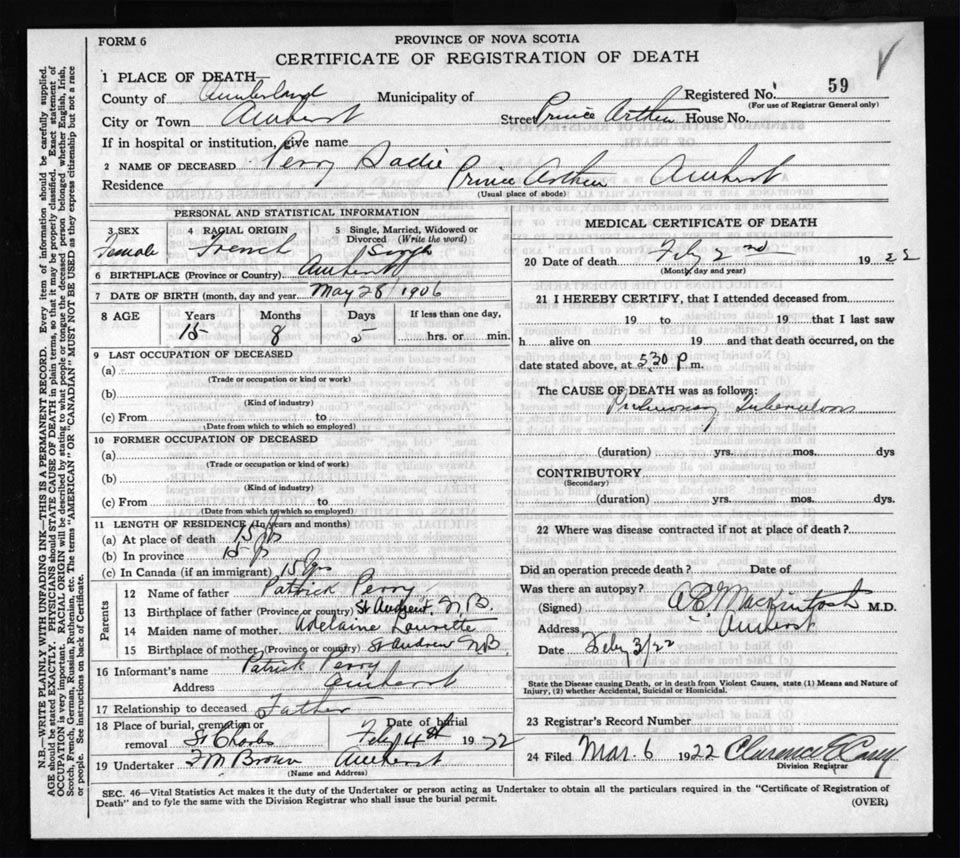 FORM 6
PROVINCE OF NOVA SCOTIA
CERTIFICATE OF REGISTRATION OF DEATH
1 PLACE OF DEATH—
County of Cumberland Municipality of Registered No. 59
(For use of Registrar General only)
City or Town Amherst Street Prince Arthur House No.
If in hospital or institution, give name
2 NAME OF DECEASED Perry Sadie
Residence Prince Arthur Amherst
(Usual place of abode)
PERSONAL AND STATISTICAL INFORMATION
3 SEX 4 RACIAL ORIGIN 5 Single, Married, Widowed or Divorced (Write the word)
Female French Single
6 BIRTHPLACE (Province or Country) Amherst
7 DATE OF BIRTH (month, day and year May 28 1906
8 AGE Years Months Days If less than one day,
15 8 5 hrs. or min.
9 LAST OCCUPATION OF DECEASED
(a)
(Trade or occupation or kind or work)
(b)
(Kind of industry)
(c) From to
(Date from which to which so employed)
10 FORMER OCCUPATION OF DECEASED
(a)
(Trade or occupation or kind or work)
(b)
(Kind of industry)
(c) From to
(Date from which to which so employed)
11 LENGTH OF RESIDENCE (In years and months)
(a) At place of death 15 yrs
(b) In province 15 yrs
(c) In Canada (if an immigrant) 15 yrs
Parents
12 Name of father Patrick Perry
13 Birthplace of father (Province or country) St Andrew N.B.
14 Maiden name of mother Adelaine Laurette
15 Birthplace of mother (Province or country) St Andrew N.B.
16 Informant's name Patrick Perry
Address Amherst
17 Relationship to deceased Father
18 Place of burial, cremation or removal St Charles Date of burial Feby 4th 1922
19 Undertaker F M Brown Amherst
(Name and Address)
MEDICAL CERTIFICATE OF DEATH
20 Date of death Feby 2nd 1922
(Month day and year)
21 I HEREBY CERTIFY, that I attended deceased from
19 to 19 that I last saw
h alive on 19 and that death occurred, on the
date stated above, at 5.30 p m.
The CAUSE OF DEATH was as follows:
Pulmonary Tuberculosis
(duration) yrs. mos. dys
CONTRIBUTORY
(Secondary)
(duration) yrs. mos. dys.
22 Where was disease contracted if not at place of death?
Did an operation precede death? Date of
Was there an autopsy?
(Signed) A.E. Mackintosh M.D.
Address Amherst
Date Feby 3/22
State the Disease causing Death, or in death from Violent Causes, state (1) Means and Nature of Injury, (2) whether Accidental, Suicidal or Homicidal.
23 Registrar's Record Number
24 Filed Mar. 6 1922 Clarence E Casey
Division Registrar
SEC. 46—Vital Statistics Act makes it the duty of the Undertaker or person acting as Undertaker to obtain all the particulars required in the "Certificate of Registration of
Death" and to fyle the same with the Division Registrar who shall issue the burial permit. (OVER)
N.B.—WRITE PLAINLY WITH UNFADING INK—THIS IS A PERMANENT RECORD. Every item of information should be carefully supplied.
AGE should be stated EXACTLY. PHYSICIANS should STATE CAUSE OF DEATH in plain terms, so that it may be properly classified. Exact statement of
OCCUPATION is very important. RACIAL ORIGIN will be described by stating to what people or tongue the deceased person belonged whether English, Irish,
Scotch, French, German, Russian, Ruthenian, etc. The terms "AMERICAN" OR "CANADIAN" MUST NOT BE USED as they express citizenship but not a race
or people. See instructions on back of Certificate.